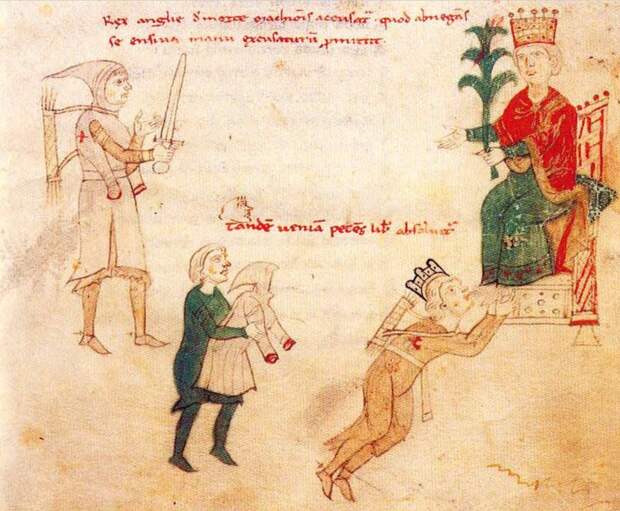 Rex anglie d' morte marchiõis accusat᷑ · quod abnegãs
se ensiua manu excusaturũ ꝓmittit ·
Tandẽ ueniã petẽs lib᷑ absoluit᷑